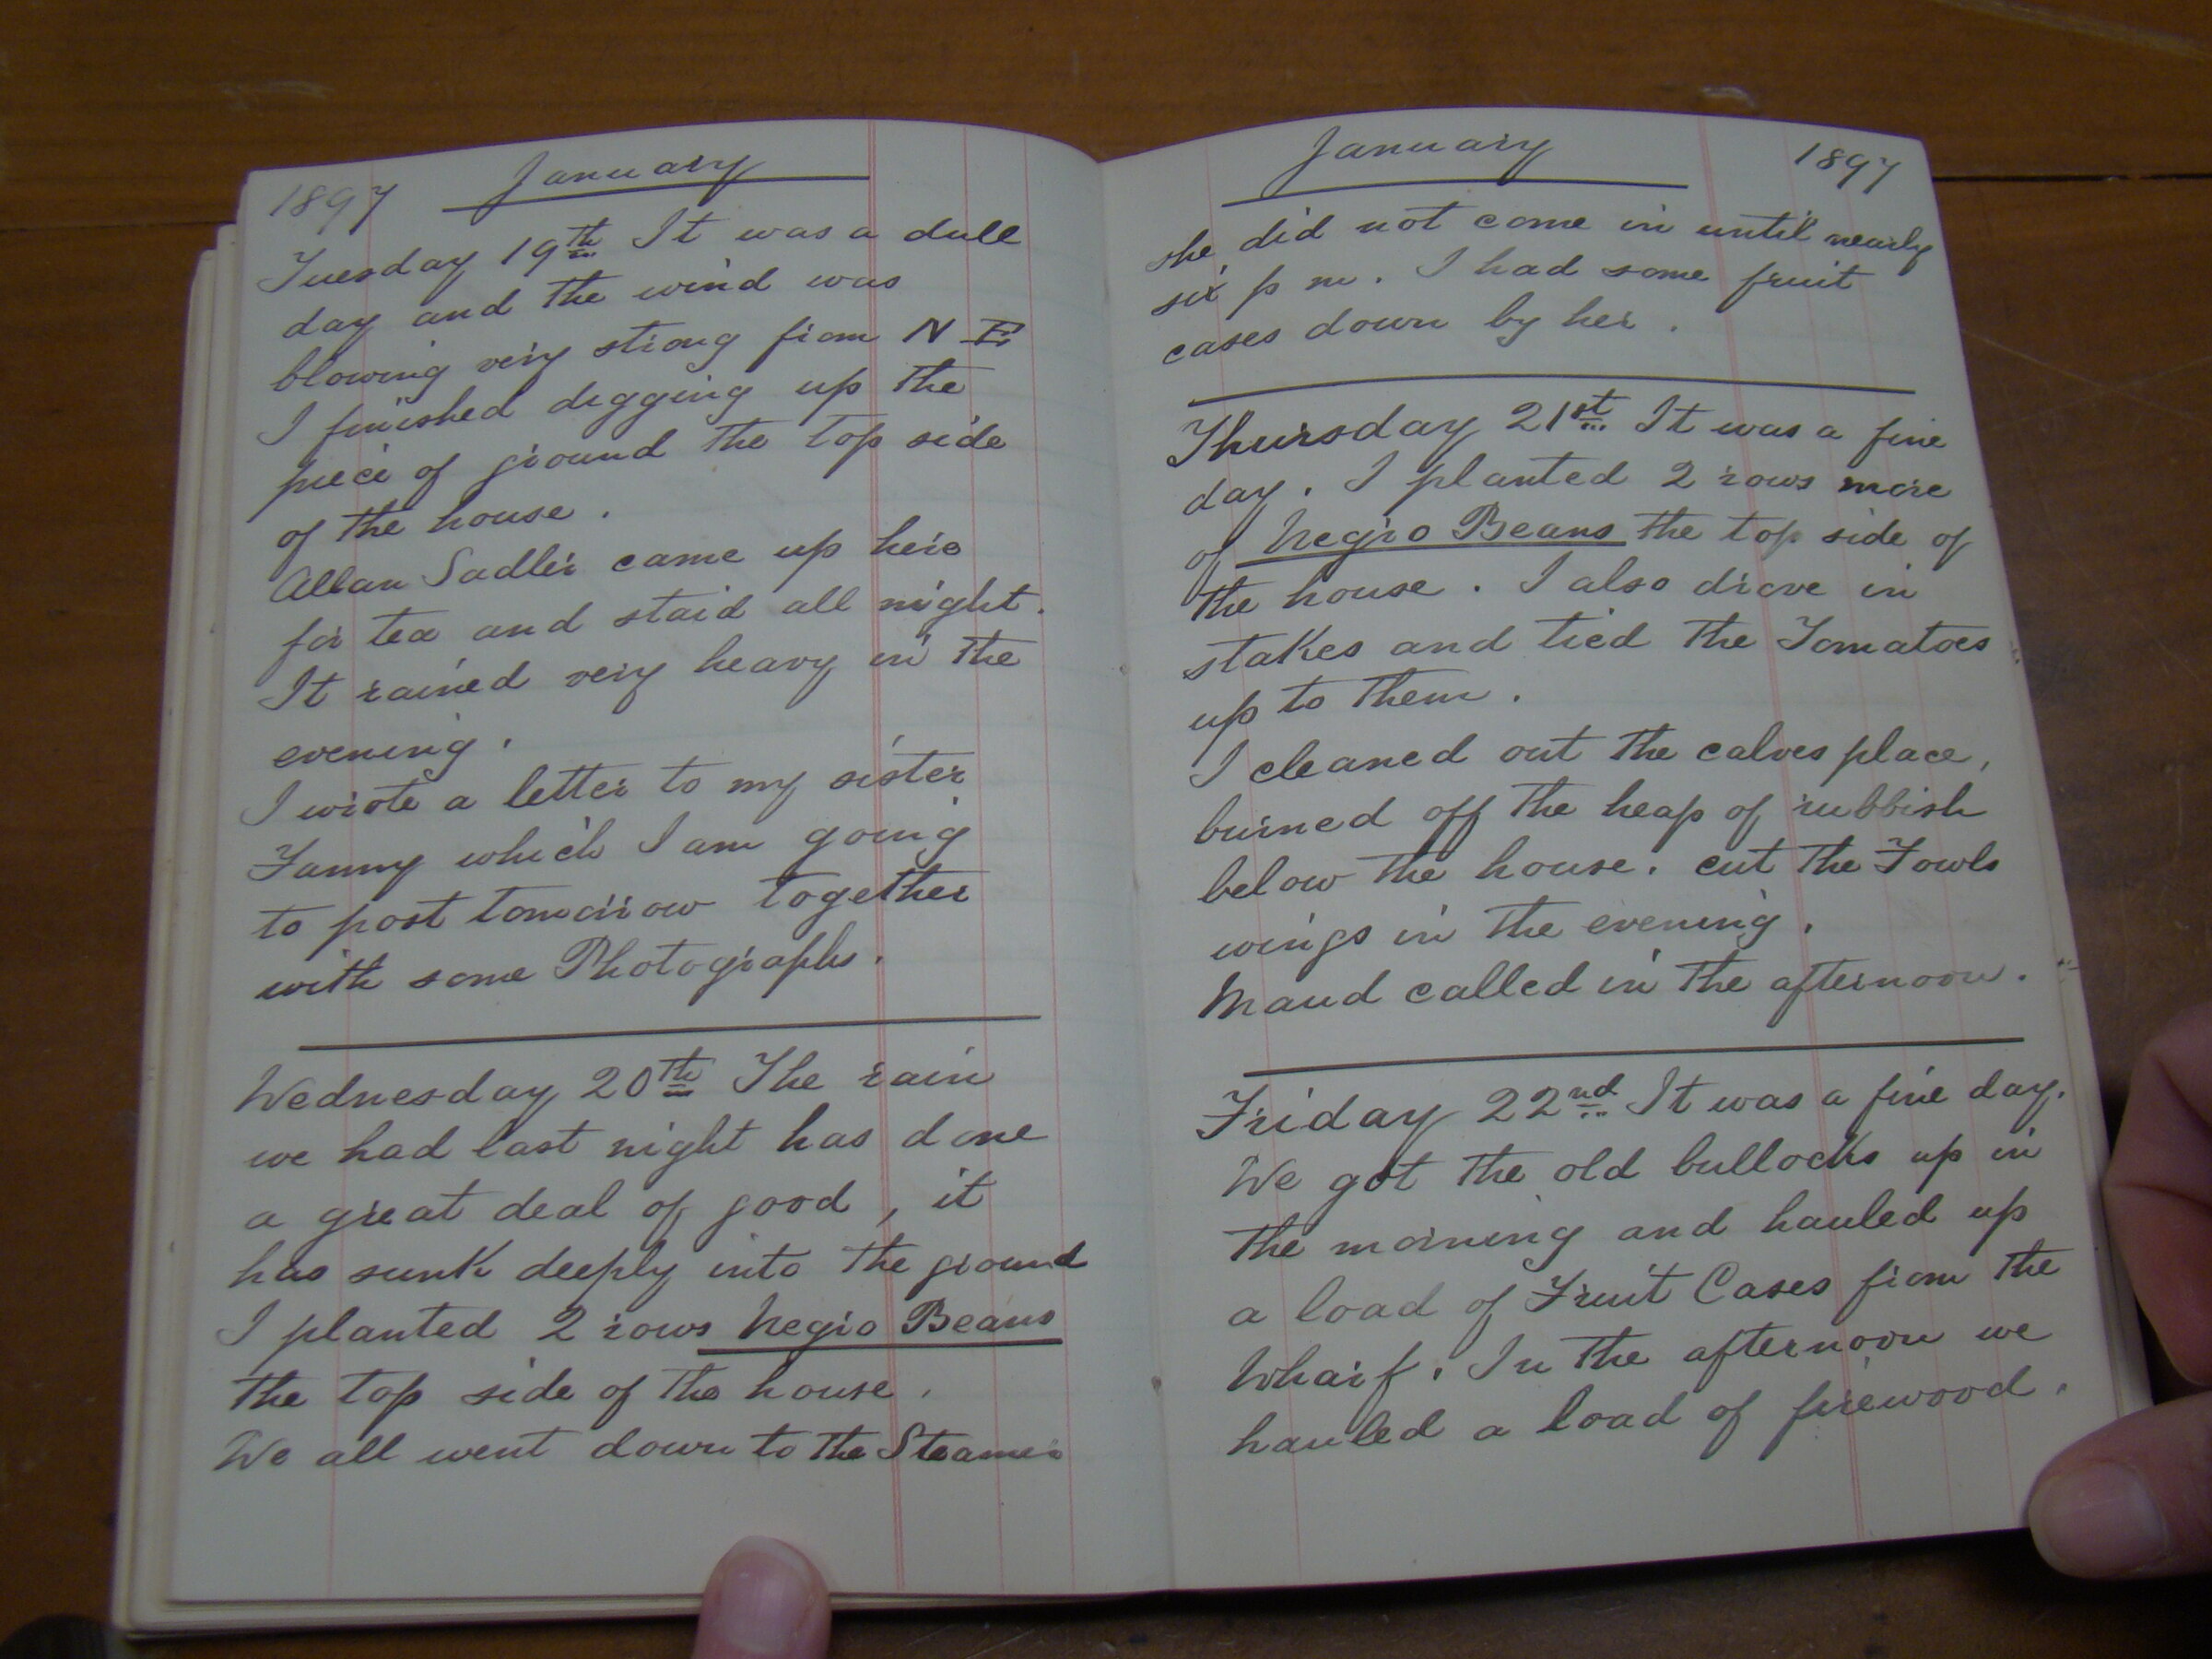 1897 January
Tuesday 19th It was a dull
day and the wind was
blowing very strong from N E
I finished digging up the
piece of ground the top side
of the house.
Allan Sadler came up here
for tea and staid all night.
It rained very heavy in the
evening.
I wrote a letter to my sister
Fanny which I am going
to post tomorrow together
with some Photographs.
Wednesday 20th The rain
we had last night has done
a great deal of good, it
has sunk deeply into the ground
I planted 2 rows Negro Beans
the top side of the house.
We all went down to the Steamer
January 1897
she did not come in until nearly
six p m. I had some fruit
cases down by her.
Thursday 21st It was a fine
day. I planted 2 rows more
of Negro Beans the top side of
the house. I also drove in
stakes and tied the Tomatoes
up to them.
I cleaned out the calves place,
burned off the heap of rubbish
below the house. cut the Fowls
wings in the evening.
Maud called in the afternoon.
Friday 22nd It was a fine day.
We got the old bullocks up in
the morning and hauled up
a load of Fruit Cases from the
Wharf. In the afternoon we
hauled a load of firewood.